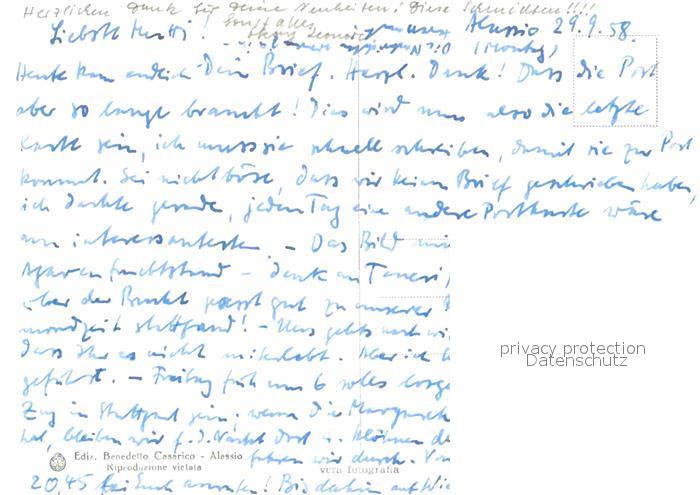 Herzlichen Dank für Deine Neuheiten! Diese Schnidten!!!!
Sonst alles
Liebste Mutti! Alassio 29.9.58.
(Montag)
Heute kam endlich Dein Brief. Herzl. Dank! Dass die Post
aber so lange braucht! Dies wird nun also die letzte
Karte sein, ich muss sie schnell schreiben, damit sie zur Post
kommt. Sei nicht böse, dass wir keinen Brief geschrieben haben,
ich dachte gerade, jeden Tag eine andere Postkarte wäre
am interessantesten – Das Bild mit
Agavenfruchtstand – denk an
Aber der passt gut zu unserer
mondzeit stattfand! – Uns gehts nach wi
dass Ihr es nicht miterlebt. Aber ich
geführt. – Freitag früh um 6 solls losge
Zug in Stuttgart sein; wenn die Margarete
hat, bleiben wir f. d. Nacht dort u.
Ediz. Benedetto Casarico - Alassio
fahren wir durch. Von
Riproduzione vietata
vera fotografia
20.45 bei Euch Bis dahin auf Wie
privacy protection
Datenschutz